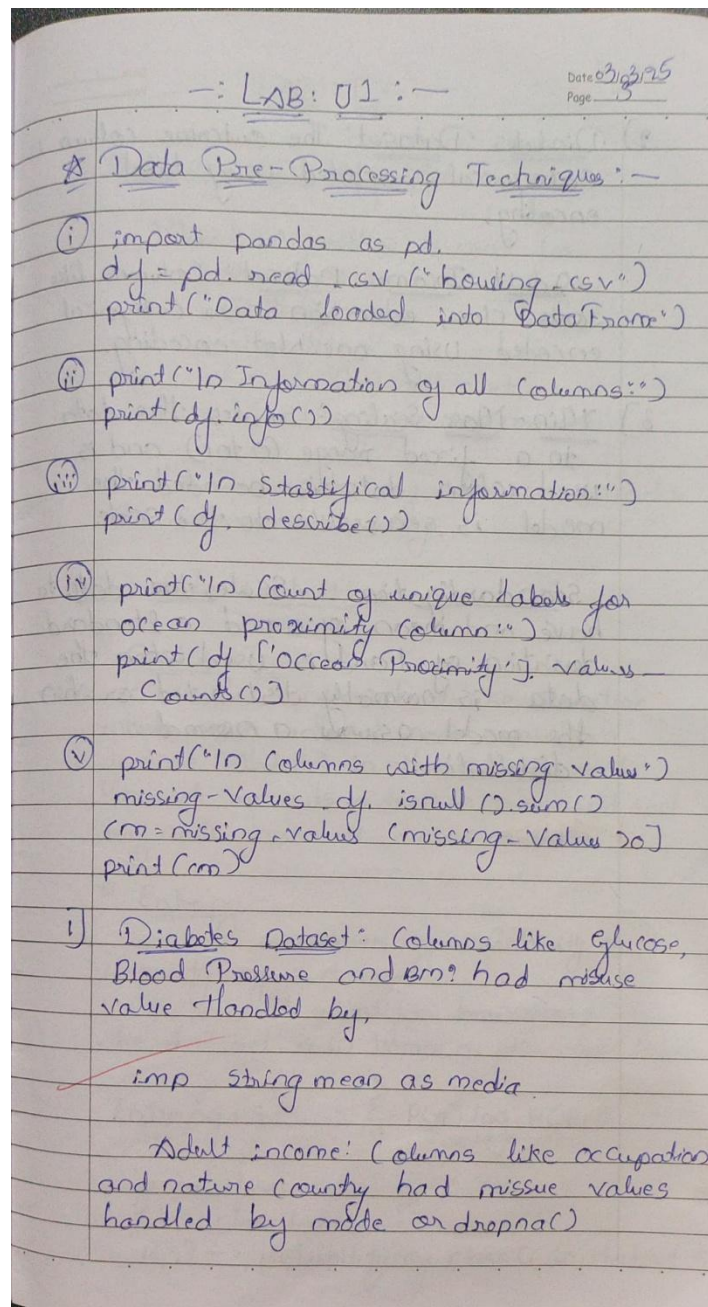 Date 03/03/25
-: LAB: 01 :-
Page 3
☆ Data Pre-Processing Techniques :-
(i) import pandas as pd.
df = pd. read_csv ("housing.csv")
print ("Data loaded into DataFrame")
(ii) print ("\n Information of all Columns:")
print (df. info())
(iii) print ("\n Stastifical information:")
print (df. describe())
(iv) print ("\n Count of unique labels for
ocean proximity Column:")
print (df ['Occean Proximity']. values_
Counts()]
(v) print ("\n Columns with missing value")
missing-Values . df. isnull ().sum()
cm = missing_values (missing-Values >0]
print (cm)
1] Diabetes Dataset: Columns like Glucose,
Blood Pressure and had misuse
value Handled by,
imp string mean as media.
Adult income: Columns like occupation
and nature country had missue values
handled by mode or dropna()